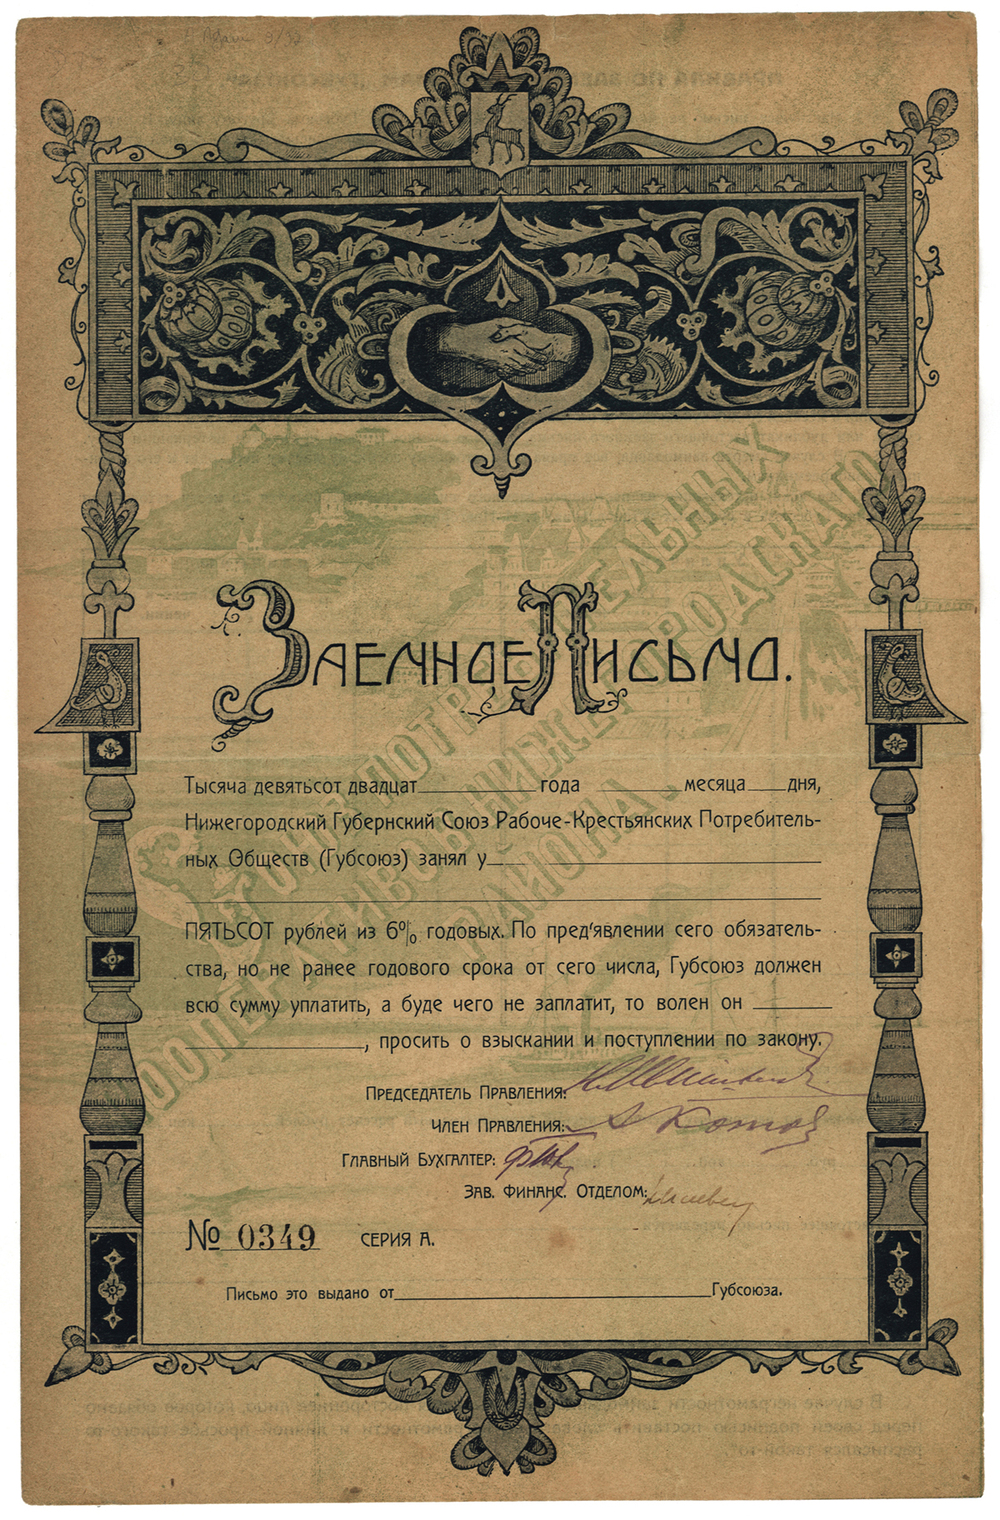 Заемное Письмо.
Тысяча девятьсот двадцат__________года ________месяца____дня,
Нижегородский Губернский Союз Рабоче-Крестьянских Потребитель-
ных Обществ (Губсоюз) занял у__________
ПЯТЬСОТ рублей из 6% годовых. По пред'явлении сего обязатель-
ства, но не ранее годового срока от сего числа, Губсоюз должен
всю сумму уплатить, а буде чего не заплатит, то волен он ________
__________, просить о взыскании и поступлении по закону.
Председатель Правления:
Член Правления: А Котов
Главный Бухгалтер:
Зав. финанс. Отделом:
№ 0349 СЕРИЯ А.
Письмо это выдано от__________Губсоюза.